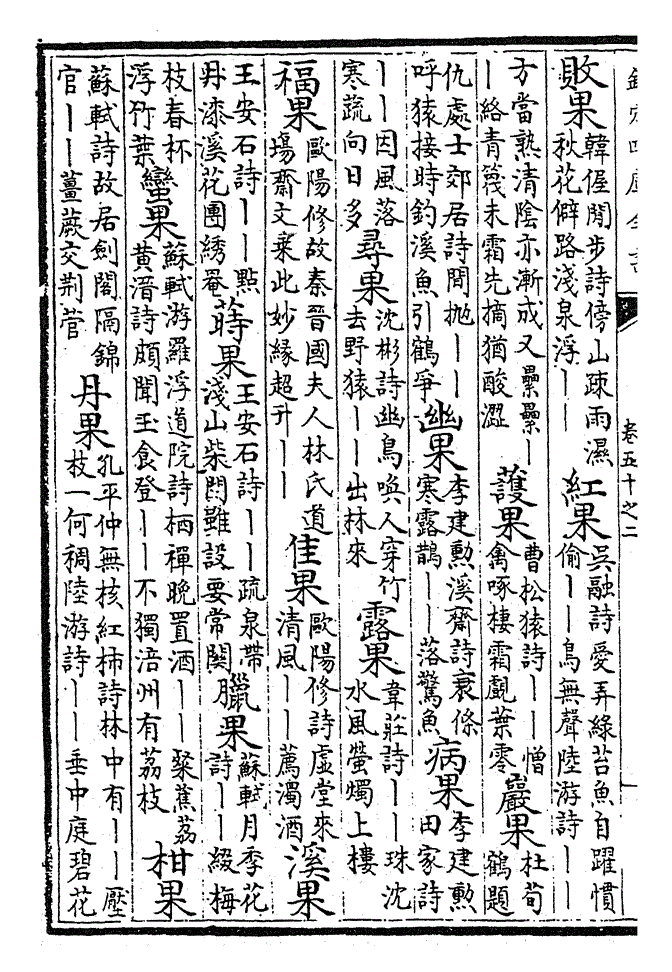 卷五十之二
敗果 韓偓閒步詩傍山踈雨濕秋花僻路淺泉浮丨丨 紅果 吳融詩愛弄綠苔魚自躍慣偷丨丨鳥無聲陸游詩丨丨
方當熟清陰亦漸成又纍纍丨丨絡青篾未霜先摘猶酸澀 護果 曹松猿詩丨丨憎禽啄棲霜覷葉零 巖果 杜荀鶴題
仇處士郊居詩閒抛丨丨呼猿接時釣溪魚引鶴爭 幽果 李建勳溪齋詩衰條寒露鵲丨丨落驚魚 病果 李建勳田家詩
丨丨因風落寒蔬向日多 尋果 沈彬詩幽鳥喚人穿竹去野猿丨丨出林來 露果 韋莊詩丨丨珠沈水風螢燭上樓
福果 歐陽修故秦晉國夫人林氏道塲齋文乗此妙緣超升丨丨 佳果 歐陽修詩虚堂來清風丨丨薦濁酒 溪果
王安石詩丨丨點丹漆溪花團綉罨 蒔果 王安石詩丨丨疏泉帶淺山柴門雖設要常關 臘果 蘇軾月季花詩丨丨綴梅
枝春杯浮竹葉 蠻果 蘇軾游羅浮道院詩栖禪晚置酒丨丨粲蕉荔黄溍詩頗聞玉食登丨丨不獨涪州有荔枝 柑果
蘇軾詩故居劍閣隔錦官丨丨薑蕨交荆菅 丹果 孔平仲無核紅柿詩林中有丨丨壓枝一何稠陸游詩丨丨垂中庭碧花